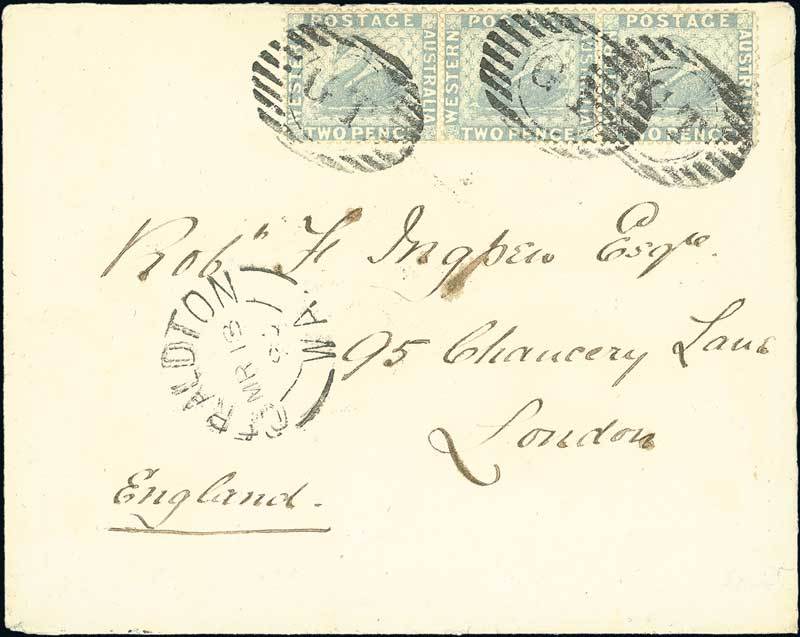 POSTAGE POSTAGE POSTAGE
WESTERN AUSTRALIA WESTERN AUSTRALIA AUSTRALIA
TWO PENCE TWO PENCE TWO PENCE
Robt H Ingpen Esqre
GERALDTON W.A.
MR 13
95 Chancery Lane
London
England.